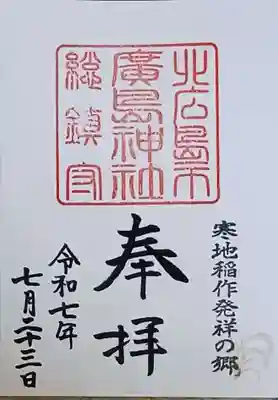 北広島市
廣島神社
総鎮守
寒地稲作発祥の郷
奉拝
令和七年
七月二十三日